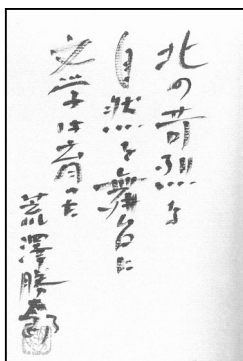 北の苛烈な
自然を舞台に
文学は育った
荒澤勝太郎